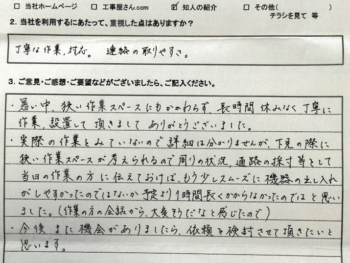 □ 当社ホームページ □ 工事屋さん.com ☑ 知人の紹介 □ その他( )
チラシを見て 等
2. 当社を利用するにあたって、重視した点はありますか?
丁寧な作業、対応。連絡の取りやすさ。
3. ご意見・ご感想・ご要望などがございましたら、ご記入ください。
・暑い中、狭い作業スペースにもかかわらず、長時間休みなく丁寧に
作業、設置して頂きましてありがとうございました。
・実際の作業をみていないので詳細は分かりませんが、下見の際に
狭い作業スペースが考えられるので周りの状況、通路の採寸等をして
当日の作業の方に伝えておけば、もう少しスムーズに機器の出し入れ
がしやすかったのではないか 予定より1時間長くかからなかったのではと思い
ました。(作業の方の会話から、大変そうだなと感じたので)
・今後また機会がありましたら、依頼を検討させて頂きたいと
思います。